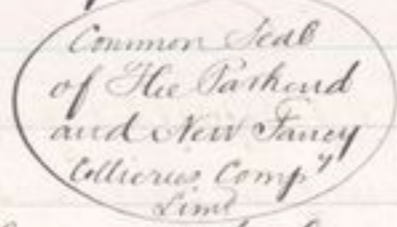 Common Seal
of The Parkend
and New Fancy
Collieries Compy
Limd